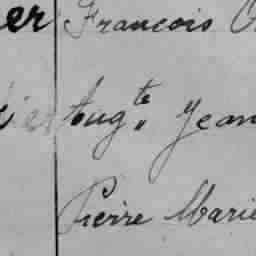 er François
Aug^te Jean
Pierre Marie